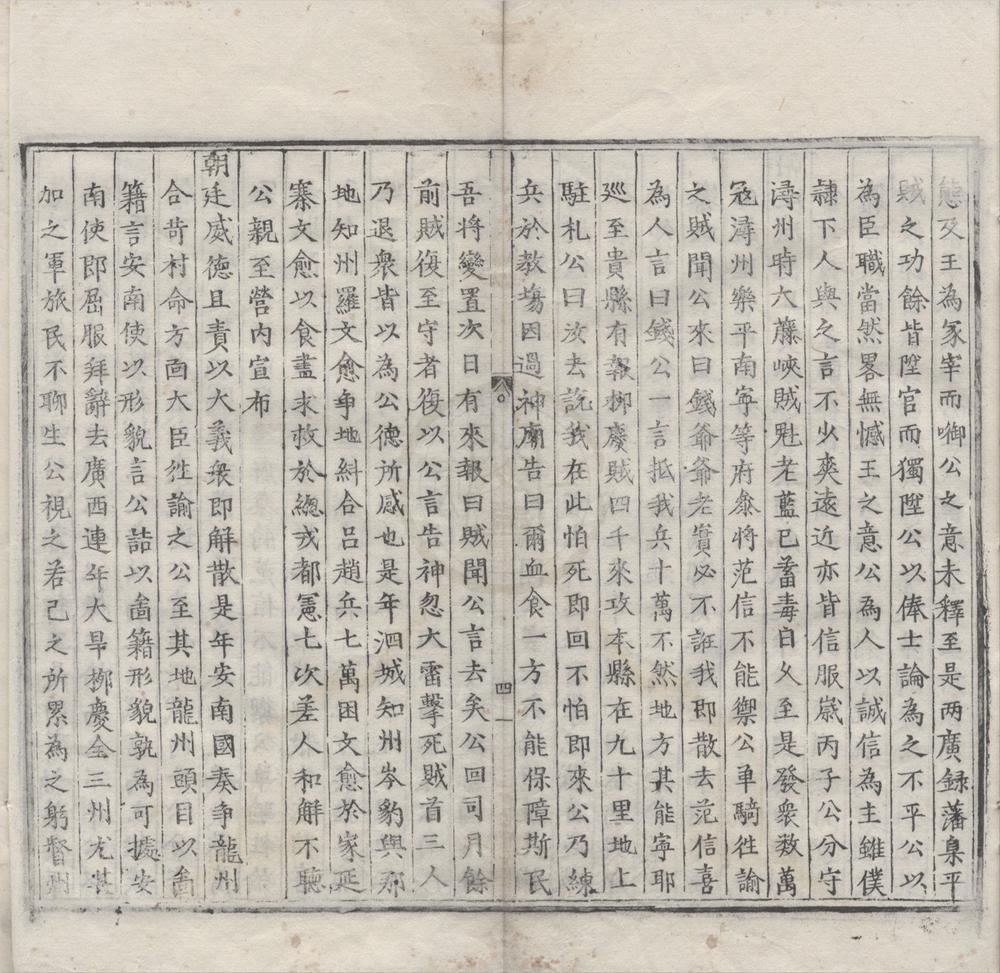 態及王為冢宰而啣公之意未釋至是两廣録藩臬平
賊之功餘皆陞官而獨陞公以俸士論為之不平公以
為臣職當然畧無憾王之意公為人以誠信為主雖僕
隷下人與之言不少爽遠近亦皆信服嵗丙子公分守
潯州時大藤峽賊魁老藍已蓄毒日久至是發衆数萬
冦潯州樂平南寧等府叅將范信不能禦公单騎徃諭
之賊聞公來曰錢爺爺老實必不誑我即散去范信喜
為人言曰錢公一言抵我兵十萬不然地方其能寧耶
廵至貴縣有報栁慶賊四千來攻本縣在九十里地上
駐札公曰汝去說我在此怕死即回不怕即來公乃練
兵於教塲因過神廟告曰爾血食一方不能保障斯民
四
吾將變置次日有來報曰賊聞公言去矣公回司月餘
前賊復至守者復以公言告神忽大雷擊死賊首三人
乃退衆皆以為公德所感也是年泗城知州岑豹與那
地知州羅文愈争地紏合呂趙兵七萬困文愈於家延
寨文愈以食盡求救於總戎都憲七次差人和觧不聽
公親至營内宣布
朝廷威德且責以大義衆即解散是年安南國奏争龍州
合苛村命方面大臣徃諭之公至其地龍州頭目以啚
籍言安南使以形貌言公詰以啚籍形貌孰為可據安
南使即屈服拜辭去廣西連年大旱栁慶全三州尤甚
加之軍旅民不聊生公視之若己之所累為之躬督州